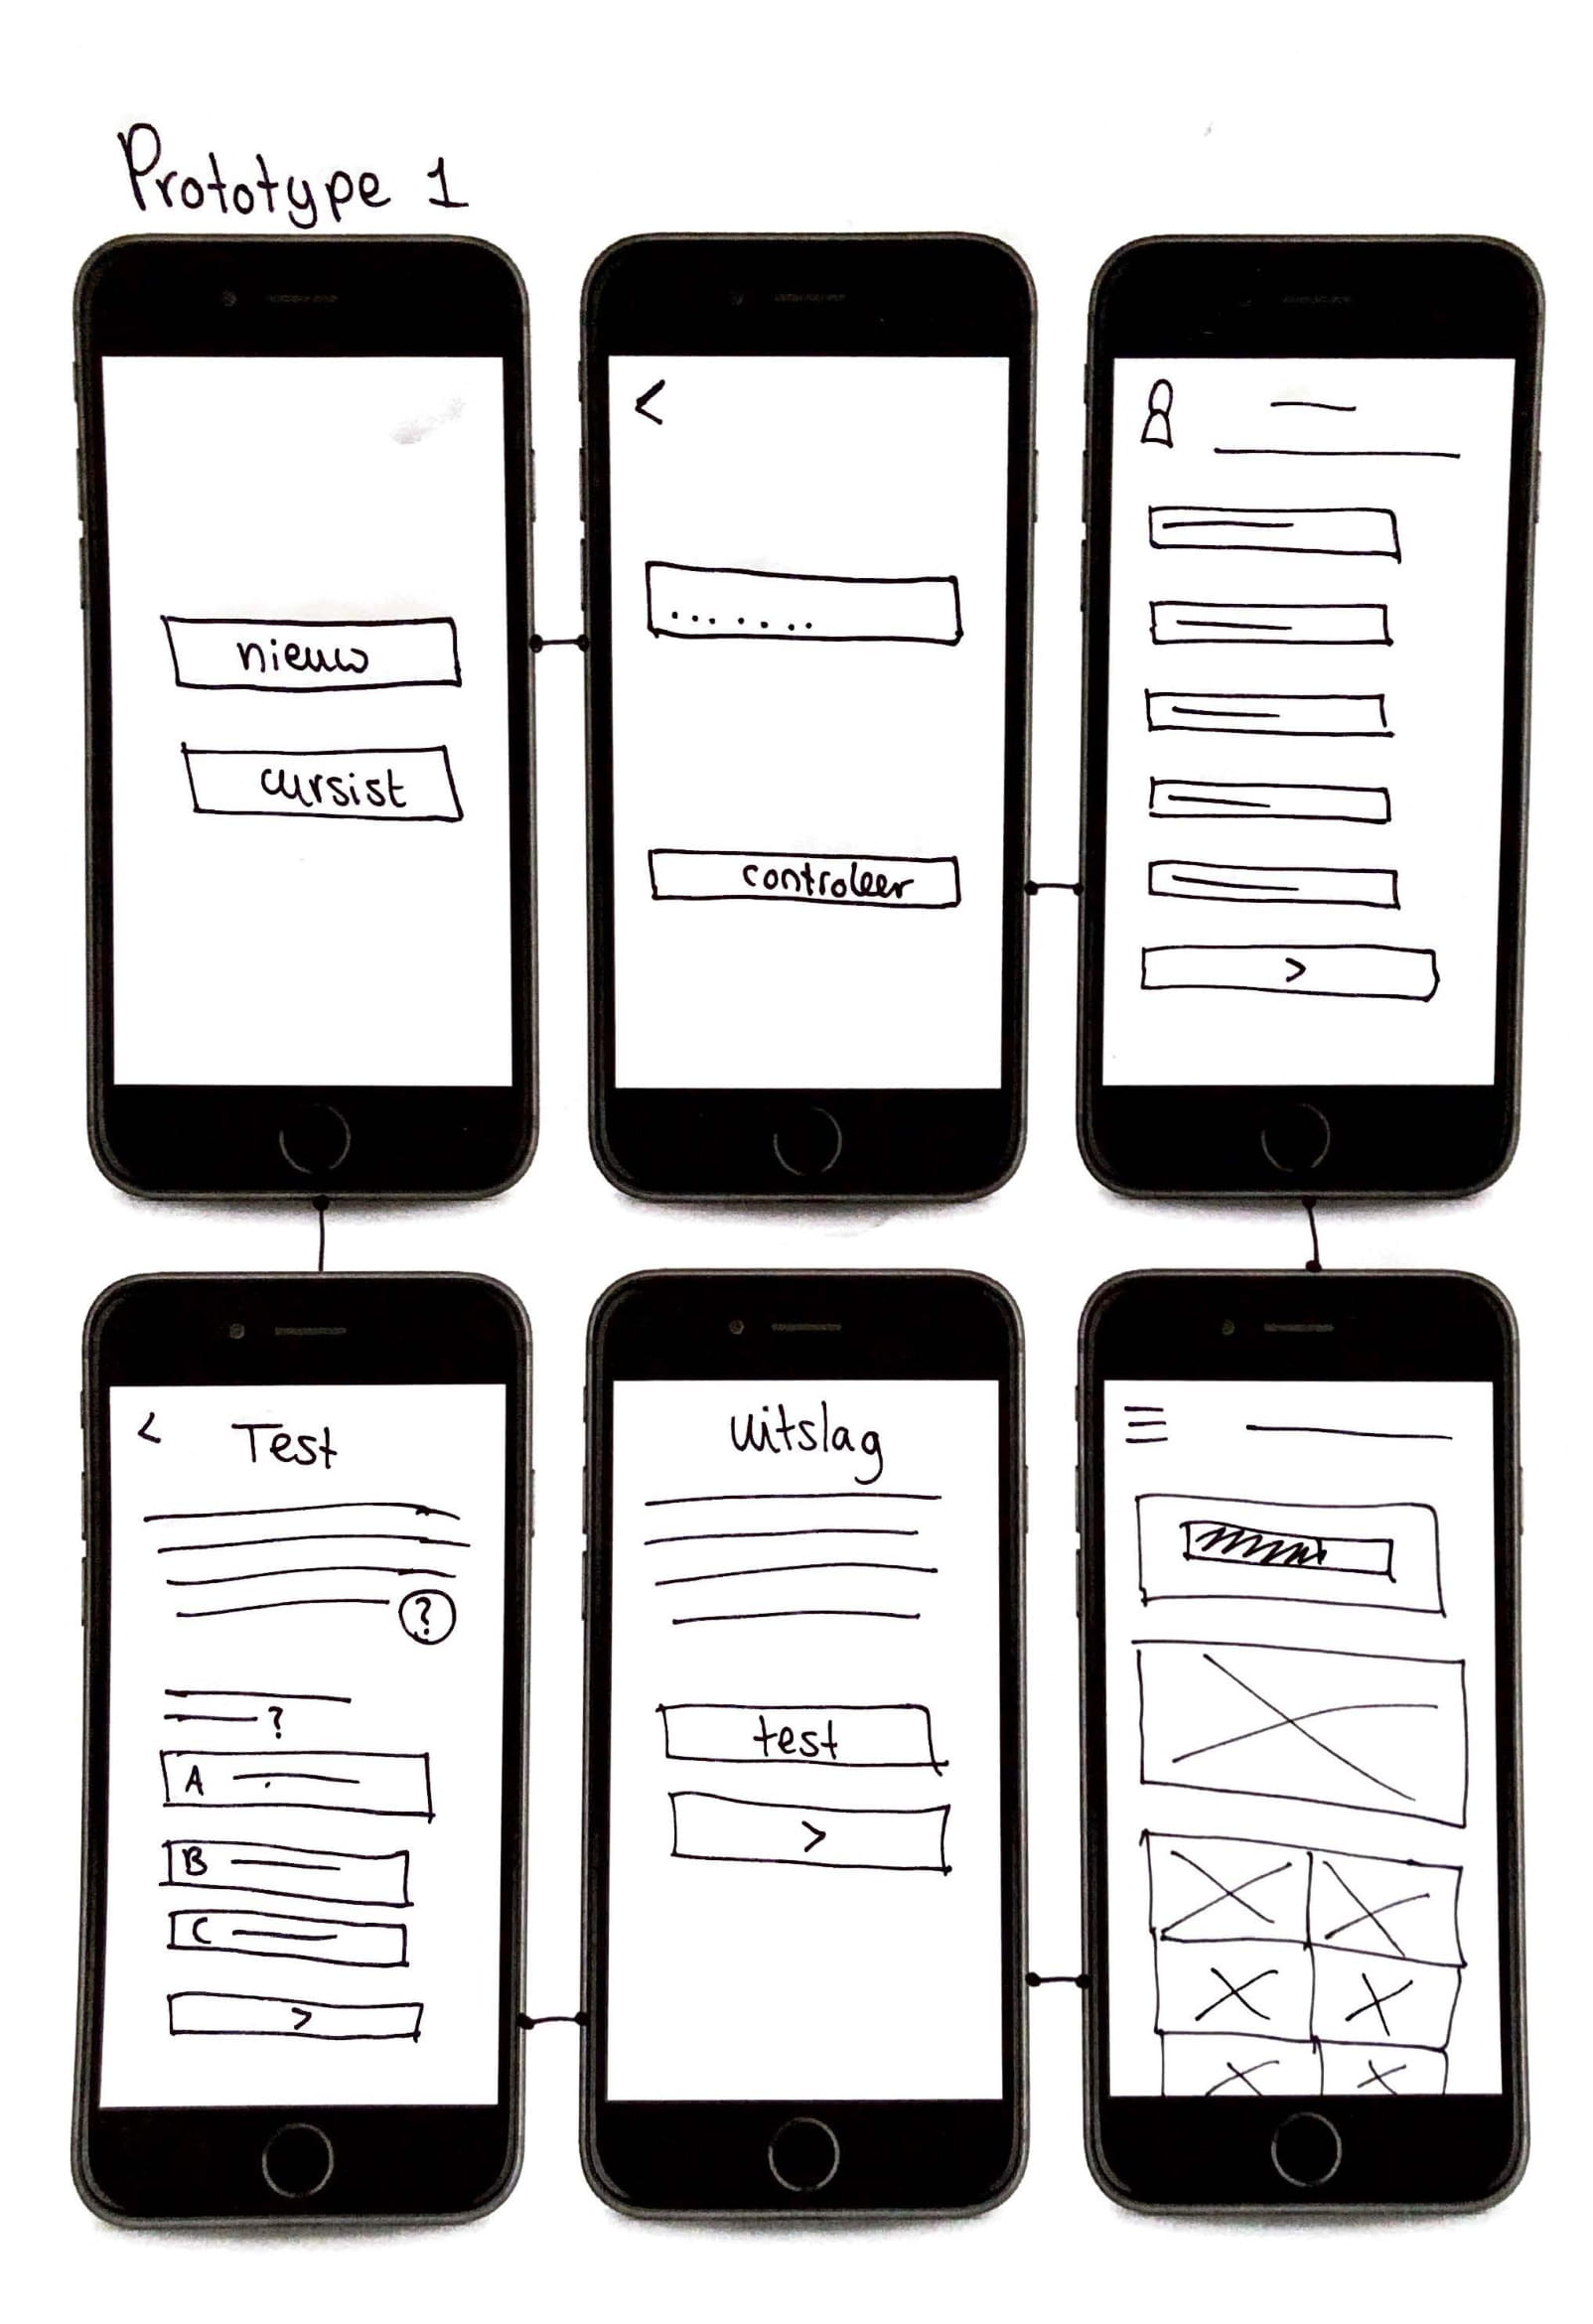 Prototype 1
nieuw
cursist
<
.......
controleer
>
< Test
?
?
A
B
C
>
uitslag
test
>